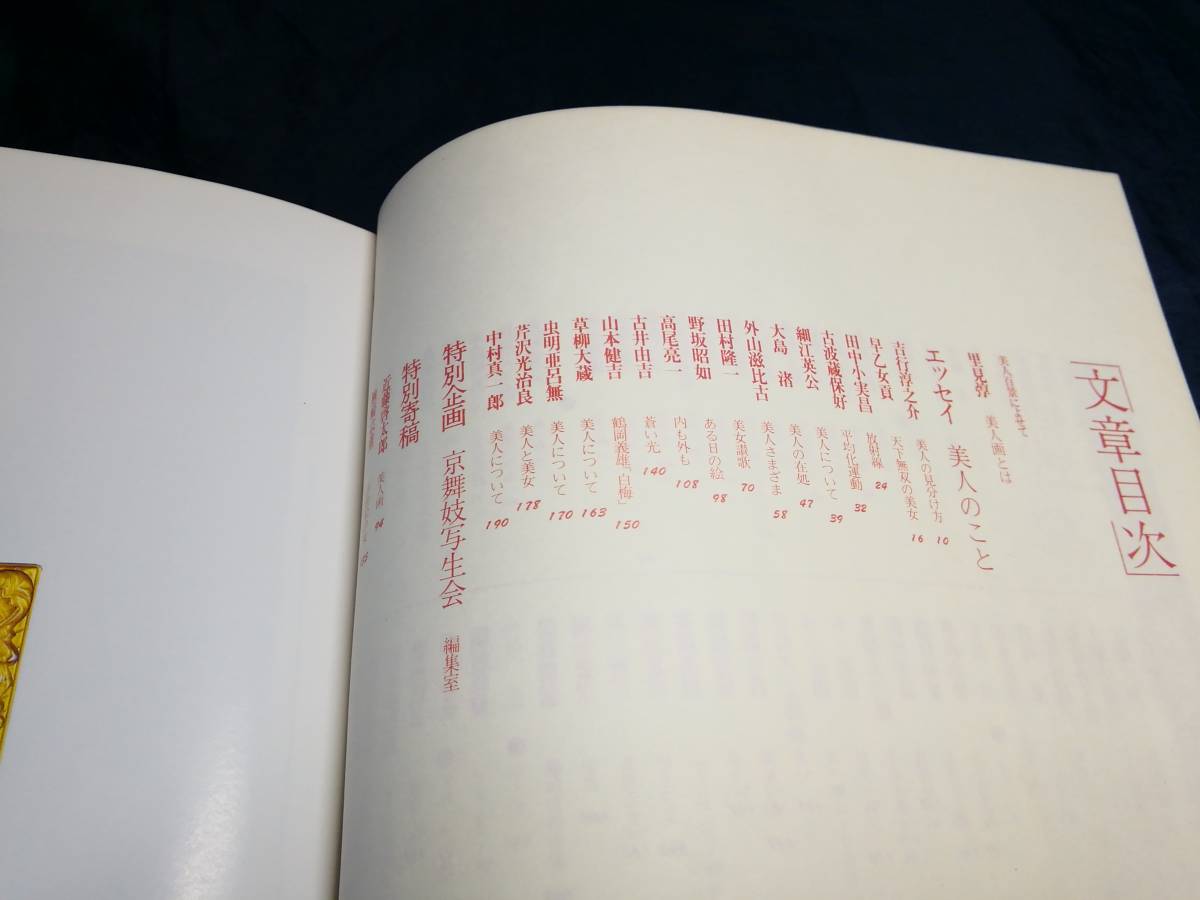 文章目次
美人百景によせて
里見弴 美人画とは
エッセイ 美人のこと
吉行淳之介 美人の見分け方 10
早乙女貢 天下無双の美女 16
田中小実昌 放射線 24
古波蔵保好 平均化運動 32
細江英公 美人について 39
大島渚 美人の在処 47
外山滋比古 美人さまざま 58
田村隆一 美女讃歌 70
野坂昭如 ある日の絵 98
高尾亮一 内も外も 108
古井由吉 蒼い光 140
山本健吉 鶴岡義雄「白梅」 150
草柳大蔵 美人について 163
虫明亜呂無 美人について 170
芹沢光治良 美人と美女 178
中村真一郎 美人について 190
特別企画 京舞妓写生会 編集室
特別寄稿
近藤啓太郎 美人画 94